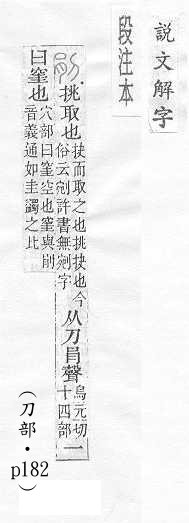 說文解字
段注本
剈
挑取也
抉而取之也挑抉也今
俗云剜許書無剜字
从刀肙聲
烏元切
十四部
一
曰窐也
穴部曰窐空也窐與剈
音義通如圭蠲之比
（刀部・p182）